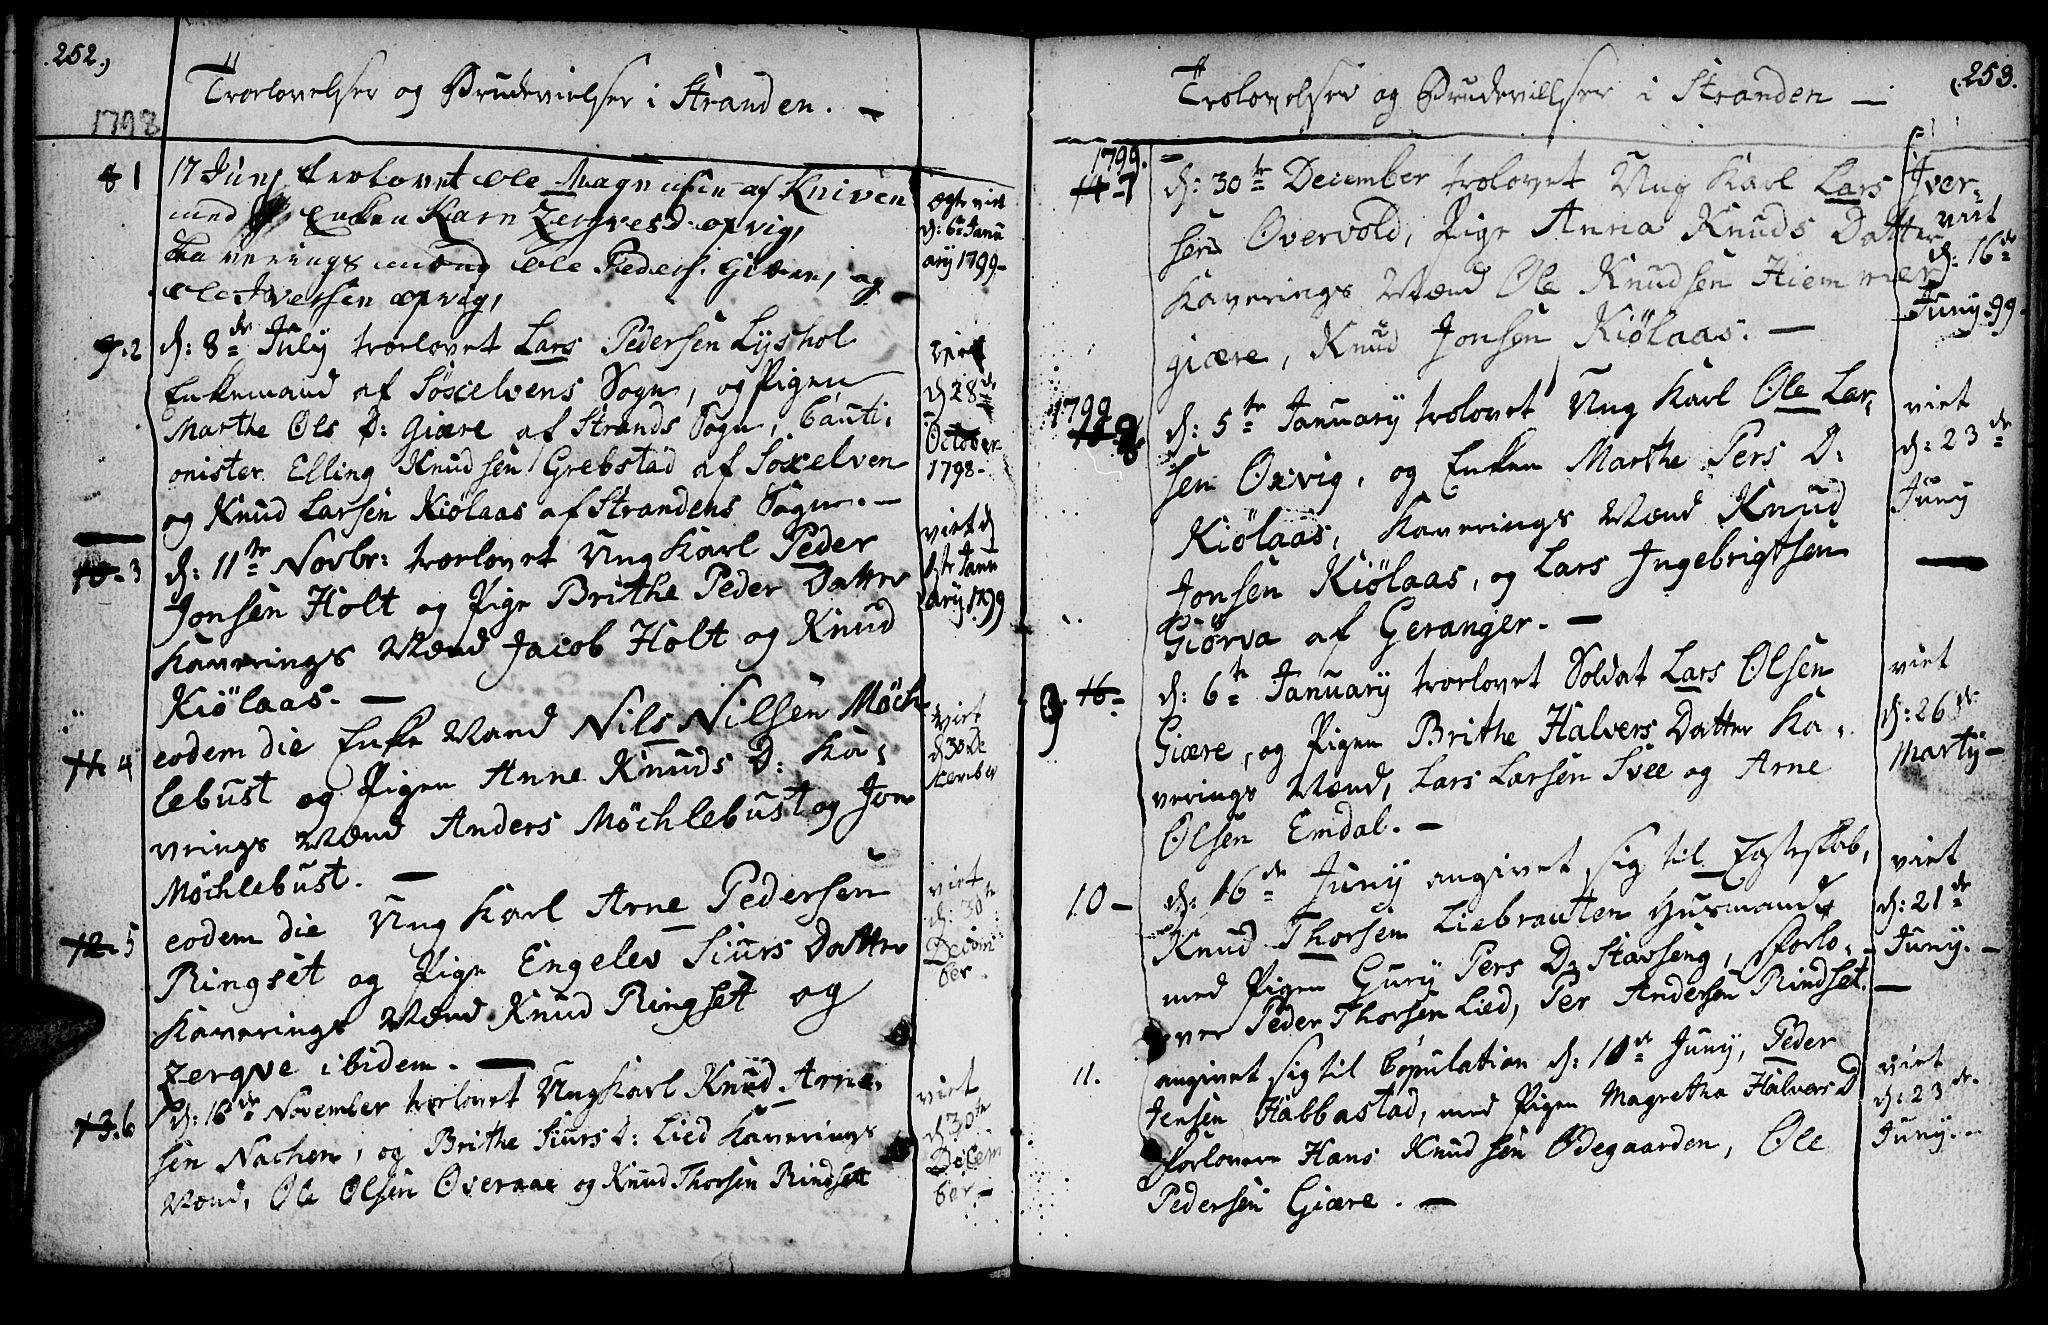 252.)
Trorlovelser og Brudevielser i Stranden. -
1798
8 1
17 Juny trolovet Ole Magnusen af Kniven
med Enken Karn Zergvesd. opvig,
Ka verings mænd Ole Peders. Giære, og
Ole Iversen opvig,
Ægte viet
d: 6te Janu
ary 1799-
9. 2
d: 8de July trorlovet Lars Pedersen Lyshol
Enkemand af Söxelvens Sogn, og Pigen
Marthe Ols D: Giære af Strands Sogn, Cauti,
onister Elling Knudsen Grebstad af Söxelven
og Knud Larsen Kiölaas af Strandens Sogn. -
viet
d 28de
October
1798-
10- 3
d: 11te Novbr: trorlovet Ung Karl Peder
Jonsen Holt og Pige Brithe Peder Datter
Kaverings Mænd Jacob Holt og Knud
Kiölaas. -
viet d
Janu
ary 1799
11. 4
eodem die Enke Mand Nils Nilsen Möch
lebust og Pigen Anne Knuds D: Ka,
vrings Mænd Anders Möchlebust og Jon
Möchlebust. -
viet
d 30 De
cember
12- 5
eodem die Ung Karl Arne Pedersen
Ringset og Pige Engelev Siurs Datter
Kaverings Mænd Knud Ringset og
Zergve ibidem. -
viet
d: 30te
Decem
ber.
13. 6
d: 16de November trorlovet Ung Karl Knud Arne,
sen Nachen, og Brithe Siurs D: Lied Kaverings
Mænd, Ole Olsen Overaae og Knud Thorsen Rindset
viet
d 30te
Decem
ber -
253.
Trolovelser og Brudevillser i Stranden -
1799.
14- 7
d: 30te December trolovet Ung Karl Lars Iver-
sen Overvold, Pige Anna Knuds Datter
Kaverings Mænd Ole Knudsen Hiemmer
giære, Knud Jonsen Kiölaas. -
viet
d: 16de
Juny 99.
1799
8
d: 5te January trolovet Ung Karl Ole Lar,
sen Oxvig, og Enken Marthe Pers D:
Kiölaas, Kaverings Mænd Knud
Jonsen Kiölaas, og Lars Ingebrigtsen
Giörva af Geranger. -
viet
d: 23de
Juny
9 16-
d: 6te January trorlovet Soldat Lars Olsen
Giære, og Pigen Brithe Halvers Datter Ka,
verings Mænd, Lars Larsen Svee og Arne
Olsen Emdal. -
viet
d: 26de
Marty -
10 -
d: 16de Juny angivet sig til Egteskab,
Knud Thorsen Liebrauten Husmand
med Pigen Gurÿ Pers D. Stavseng, Forlo-
ver Peder Thorsen Lied, Per Andersen Rindset.
viet
d: 21de
Juny. -
11.
angivet sig til Copulation d: 10de Juny, Peder
Jensen Habbastad, med Pigen Magretha Halvers D
Forlovere Hans Knudsen Ödegaarden, Ole
Pedersen Giære. -
viet
d: 23de
Juny. -